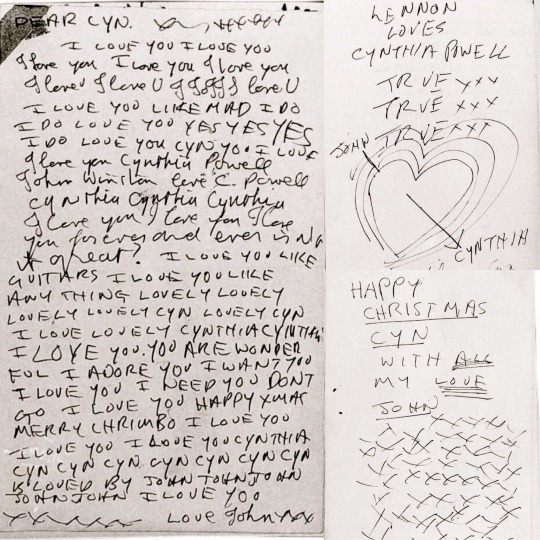 DEAR CYN.
I LOVE YOU I LOVE YOU
I love you I love you I love you
I love U I love U I love U
I LOVE YOU LIKE MAD I DO
I DO LOVE YOU YES YES YES
I DO LOVE YOU CYN YO. I LOVE
I love you Cynthia Powell
John Winston love C. Powell
CYNthia Cynthia Cynthia
I love you I love you I love
you forever and ever isN
it great? I LOVE YOU LIKE
GUITARS I LOVE YOU LIKE
ANY THING LOVELY LOVELY
LOVELY LOVELY CYN LOVELY CYN
I LOVE LOVELY CYNTHIA CYNTHIA
I LOVE YOU. YOU ARE WONDER
FUL I ADORE YOU I WANT YOU
I LOVE YOU I NEED YOU DONT
GO I LOVE YOU HAPPY XMAS
MERRY CHRIMBO I LOVE YOU
I LOVE YOU I LOVE YOU CYNTHIA
CYN CYN CYN CYN CYN CYN CYN
IS LOVED BY JOHN JOHN JOHN
JOHN JOHN I LOVE YOU
LOVE John xxx
LENNON
LOVES
CYNTHIA POWELL
TRUE xxx
TRUE xxx
TRUE xxx
JOHN
CYNTHIA
HAPPY
CHRISTMAS
CYN
WITH ALL
MY LOVE
JOHN